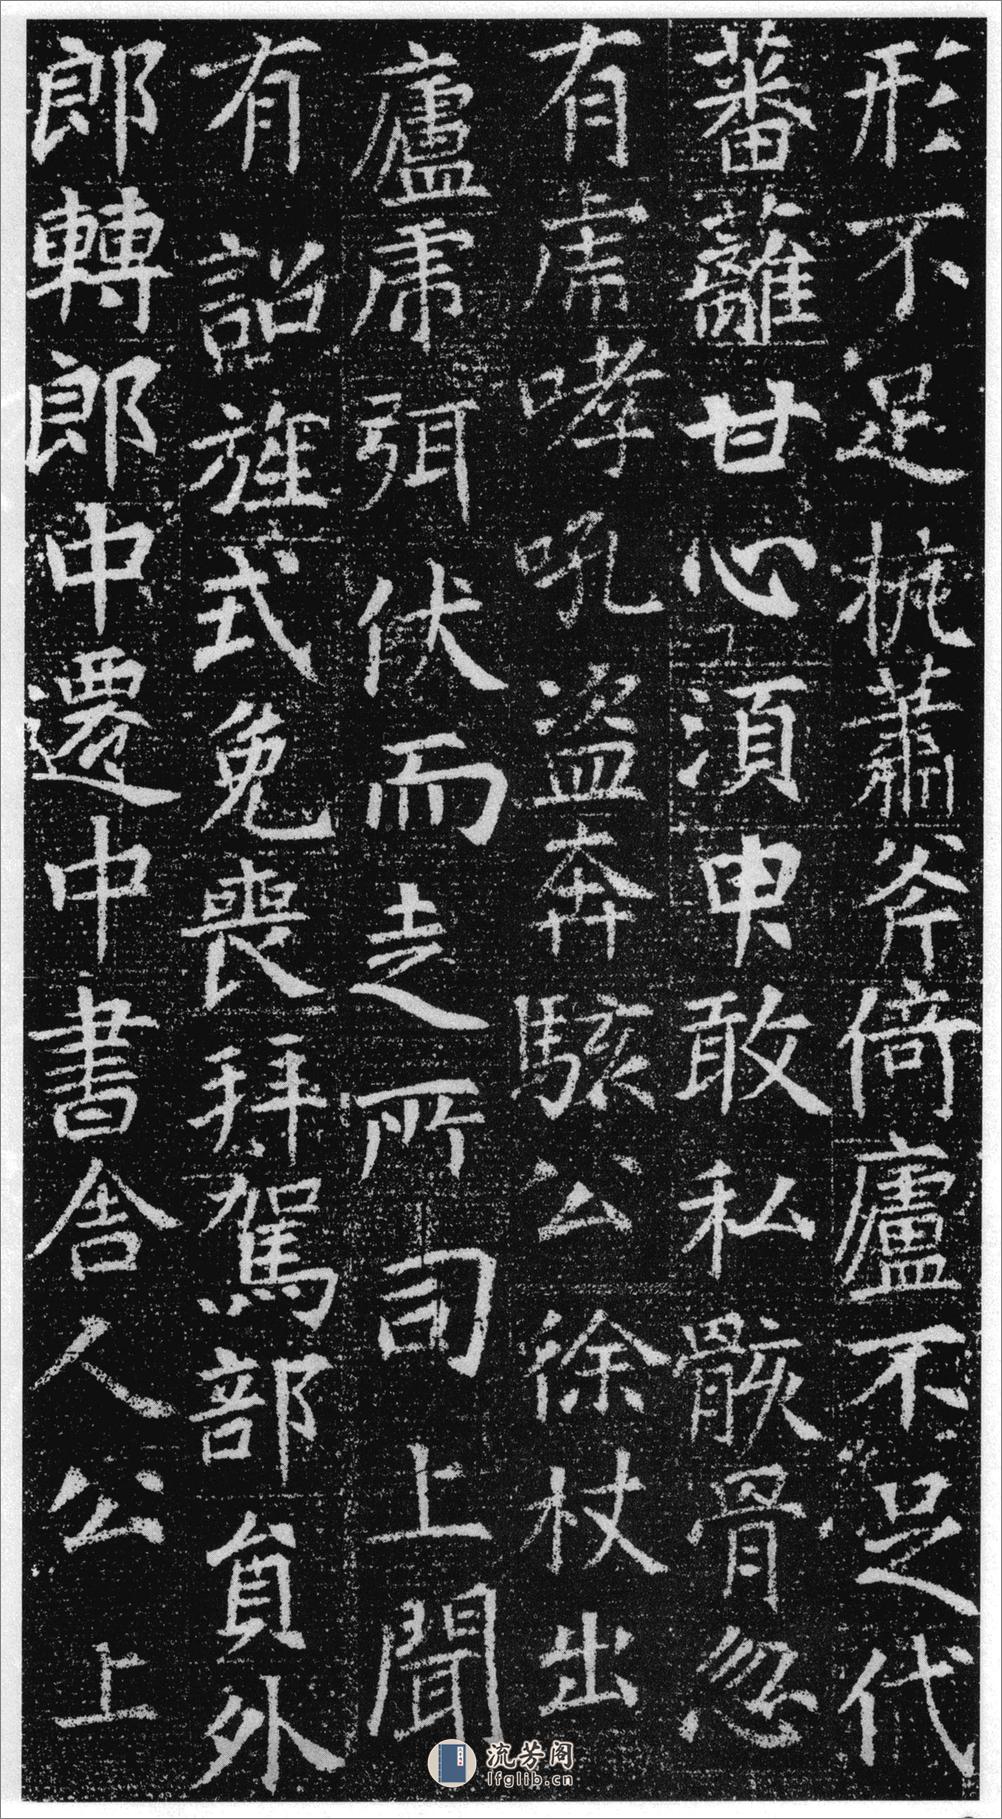 形不足梐蕭斧倚廬不足代
蕃蘺甘心湏申敢私骸骨忽
有虎哮吼盗奔駭公徐杖出
廬虎弭伏而走所司上聞
有詔旌式免喪拜駕部負外
郎轉郎中遷中書舍人公上
流芳阁
lfglib.cn